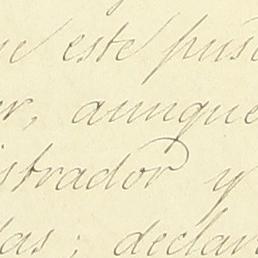 ue este pus
er, aunque
istrador y
das; declar